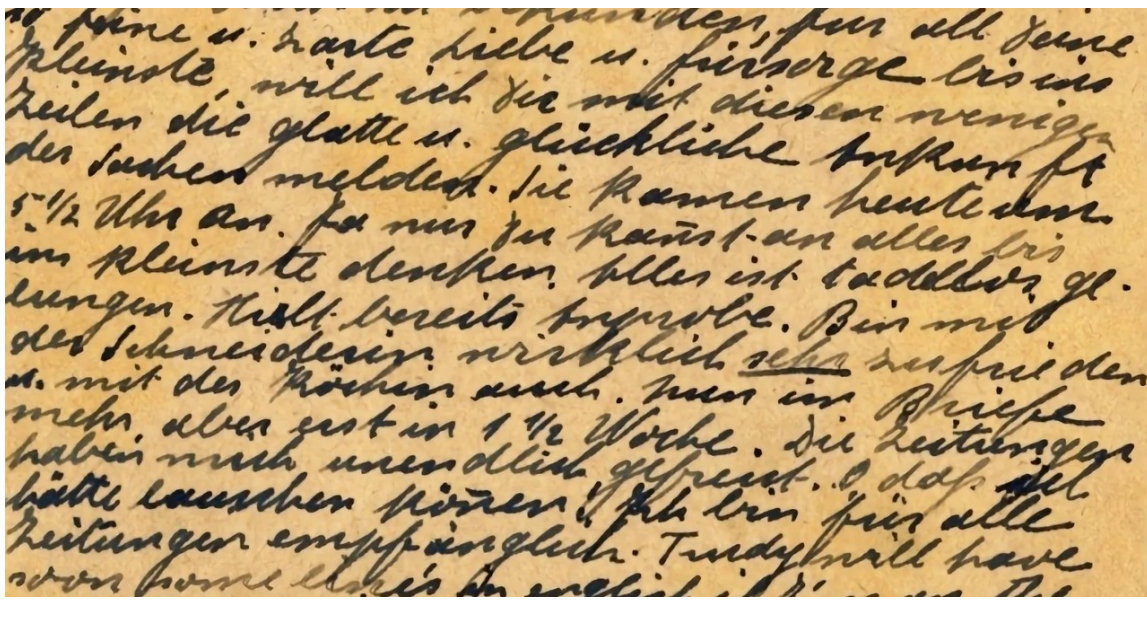 so feine u. zarte Liebe u. fürsorge bis ins
kleinste, will ich Dir mit diesen wenigen
Zeilen die glatte u. glückliche Ankunft
der Sachen melden. Sie kamen heute um
5 1/2 Uhr an. Ja nur Du kannst an alles bis
ins kleinste denken. Alles ist tadellos ge-
lungen. Hielt bereits Anprobe. Bin mit
der Schneiderin wirklich sehr zufrieden
u. mit der Köchin auch. Nun im Briefe
mehr, aber erst in 1 1/2 Woche. Die Zeitungen
haben mich unendlich gefreut. O daß ich
hätte lauschen können! Ich bin für alle
Zeitungen empfänglich. Trudy will have
soon some